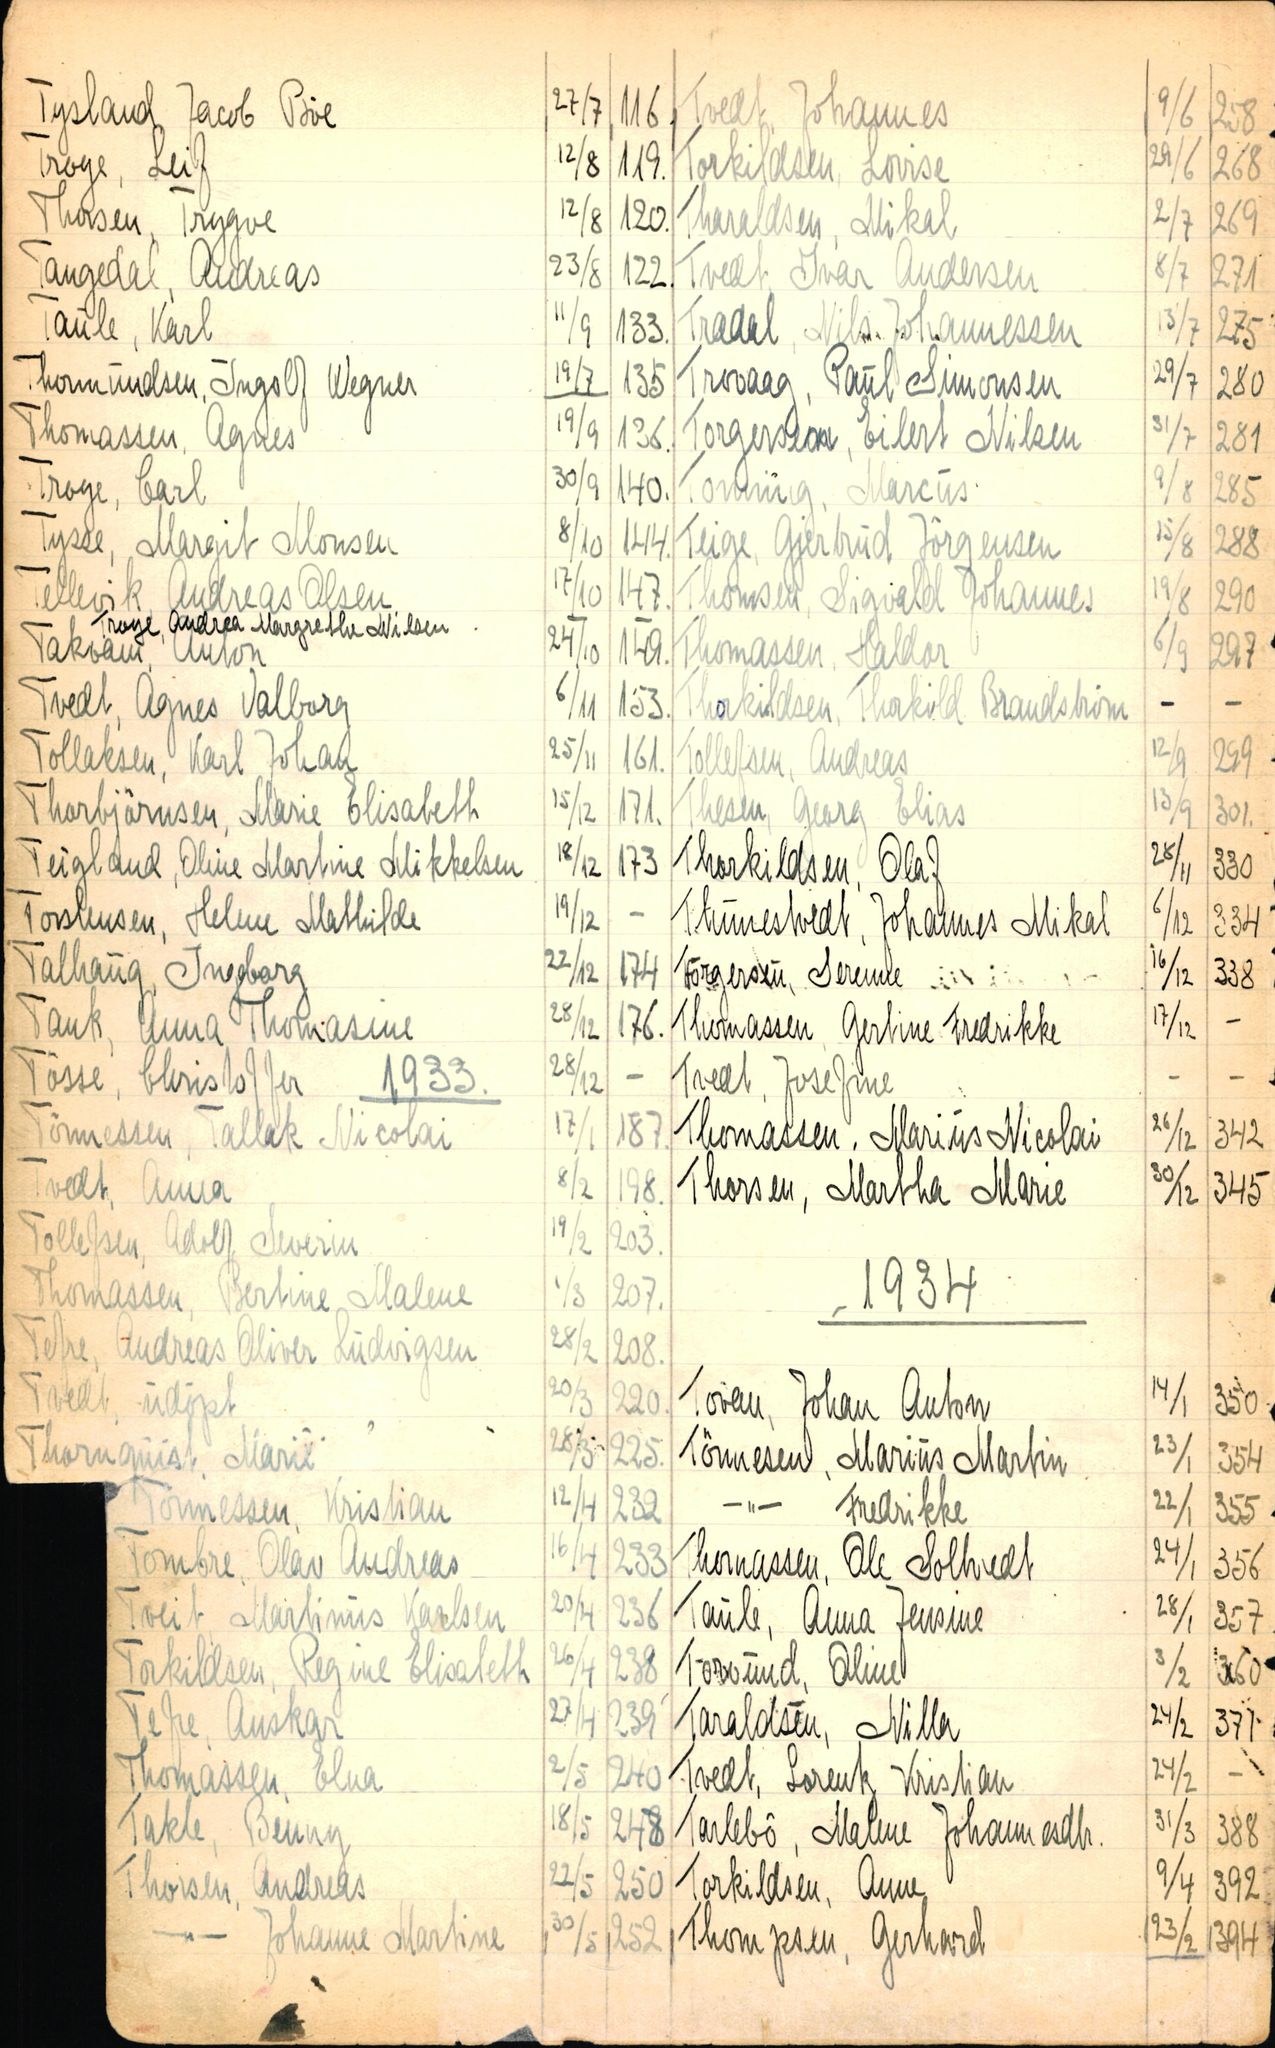 Tysland, Jacob Böe 27/7 116
Troye, Leif 12/8 119.
Thorsen, Trygve 12/8 120.
Tangedal, Andreas 23/8 122.
Taule, Karl 11/9 133.
Thormundsen, Ingolf Wegner 19/7 135
Thomassen, Agnes 19/9 136.
Troye, Carl 30/9 140.
Tysse, Margit Monsen 8/10 144.
Tellevik, Andreas Olsen 17/10 147.
Troye, Andrea Margrethe Nilsen
Takvam, Anton 24/10 149.
Tvedt, Agnes Valborg 6/11 153.
Tollaksen, Karl Johan 25/11 161.
Thorbjörnsen, Marie Elisabeth 15/12 171.
Teigland, Oline Martine Mikkelsen 18/12 173
Torstensen, Helene Mathilde 19/12 -
Talhaug, Ingeborg 22/12 174
Tank, Anna Thomasine 28/12 176.
Tösse, Christoffer 28/12 -
1933.
Tönnessen, Tallak Nicolai 17/1 187.
Tvedt, Anna 8/2 198.
Tollefsen, Adolf Severin 19/2 203.
Thomassen, Bertine Malene 1/3 207.
Tefre, Andreas Oliver Ludvigsen 28/2 208.
Tvedt, udöpt 20/3 220.
Thornquist, Marie 28/3 225.
Tönnessen, Kristian 12/4 232
Tombre, Olav Andreas 16/4 233
Tveit Martinus Karlsen 20/4 236
Torkildsen, Regine Elisabeth 26/4 238
Tefre, Anskar 27/4 239
Thomassen, Elna 2/5 240
Takle, Benny 18/5 248
Thorsen, Andreas 22/5 250
-"- Johanne Martine 30/5 252
Tvedt, Johannes 9/6 258
Torkildsen, Lovise 29/6 268
Tharaldsen, Mikal 2/7 269
Tvedt, Ivar Andersen 8/7 271
Tradal, Nils Johannessen 13/7 275
Trovaag, Paul Simonsen 29/7 280
Torgersen, Eilert Nilsen 31/7 281
Tonning, Marcus 9/8 285
Teige, Gjertrud Jörgensen 15/8 288
Thomsen, Sigvald Johannes 19/8 290
Thomassen, Haldor 6/9 297
Thorkildsen, Thorkild Brandström - -
Tollefsen, Andreas 12/9 299
Thesen, Georg Elias 13/9 301.
Thorkildsen, Olaf 28/11 330
Thunestvedt, Johannes Mikal 6/12 334
Torgersen, Serene 16/12 338
Thomassen, Gertine Fredrikke 17/12 -
Tvedt, Josefine - -
Thomassen, Marius Nicolai 26/12 342
Thorsen, Martha Marie 30/12 345
1934
Tovan, Johan Anton 14/1 350
Tönnesen, Marius Martin 23/1 354
-"- Fredrikke 22/1 355
Thomassen, Ole Solhvedt 24/1 356
Taule, Anna Jensine 28/1 357
Torvund, Oline 3/2 360
Taraldsen, Nilla 24/2 371
Tvedt, Lorentz Kristian 24/2 -
Tarlebö, Malene Johannesdtr. 31/3 388
Torkildsen, Anne 9/4 392
Thompsen, Gerhard 23/2 394